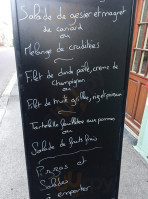 Salade de gesier et magret
de canard
ou
Melange de crudités
Filet de dinde poêlé, creme de
champignon
ou
Filet de truite grillé, riz et poireaux
Tartelette feuilletée aux pommes
ou
Salade de fruits frais
Pizzas et
Salades
à emporter